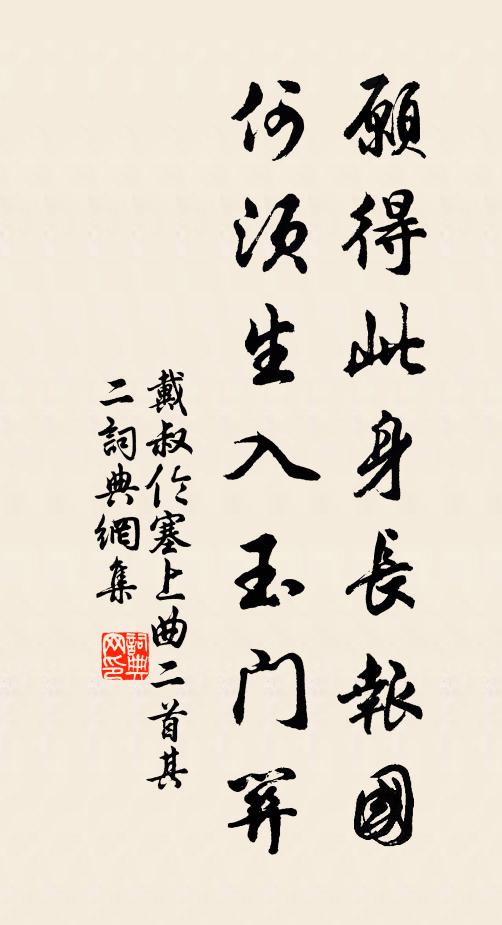 願得此身長報國
何須生入玉門關
戴叔伦塞上曲二首其
二詞典網集
詞典
网印